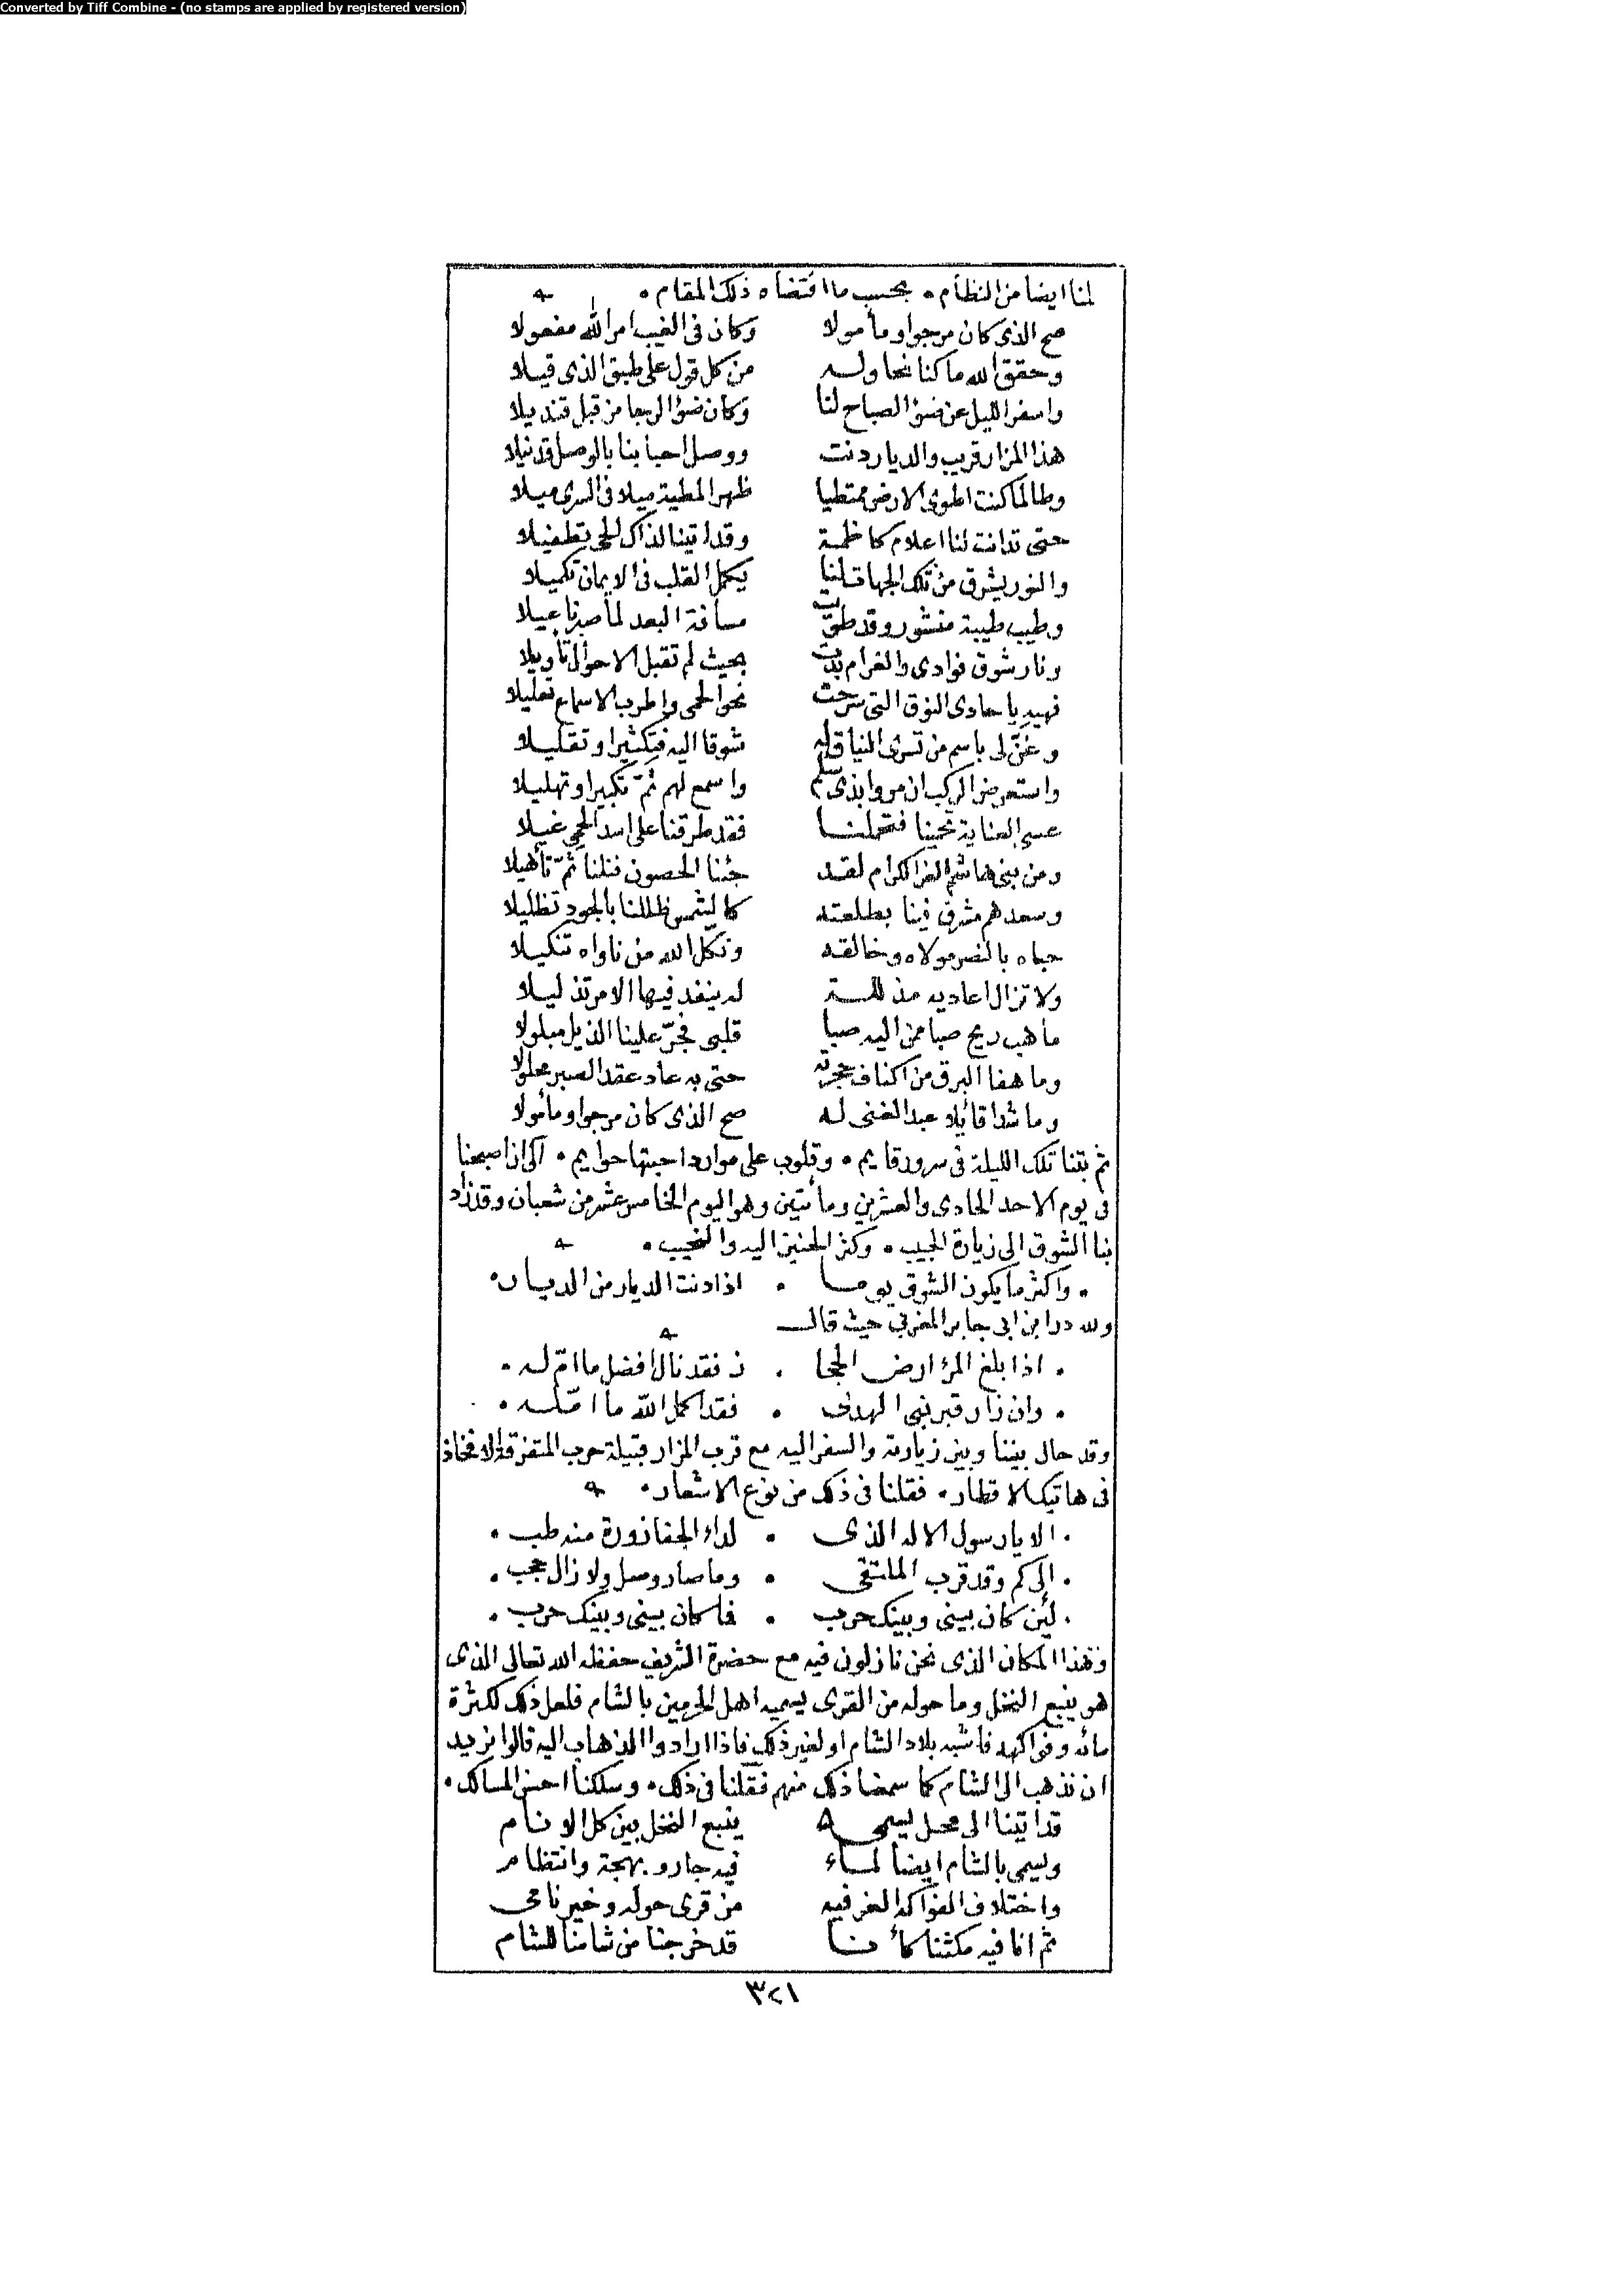 Converted by Tiff Combine - (no stamps are applied by registered version)
لنا ايضا من النظام • بحسب ما اقتضاه ذلك المقام •
صح الذى كان مرجوا ومأمولا وكان فى الغيب امر الله مفعولا
وحقق الله ما كنا نحاوله من كل قول على طبق الذى قيلا
واسفر الليل عن ضوء الصباح لنا وكان ضوء الرجا من قبل قنديلا
هذا المزار قريب والديار دنت ووصل احبابنا بالوصل قد نيلا
وطالما كنت اطوى الارض ممتطيا ظهر المطية ميلا فى السرى ميلا
حتى تدانت لنا اعلام كاظمة وقد اتينا لذاك الحى تطفيلا
والنور يشرق من تلك الجهات لنا يكمل القلب فى الايمان تكميلا
وطيب طيبة منشور وقد طويت مسافة البعد لما صبرنا عيلا
ونار شوق فوادى والغرام بدت بحيث لم تقبل الاحوال تأويلا
فهيد يا حادى النوق التى سرحت نحو الحمى واطرب الاسماع تعليلا
وغنّ لى باسم من تسرى النياق له شوقا اليه فتكثيرا وتقليلا
واستعرض الركب ان مروا بذى سلم واسمع لهم ثمّ تكبيرا وتهليلا
عسى العناية تحيينا فتحملنا فقد طرقنا على اسد الحمى غيلا
ومن بنى هاشم الغر الكرام لقد جئنا الحصون فنلنا ثمّ تأهيلا
وسعدهم مشرق فينا بطلعته كالشمس ظللنا بالجود تظليلا
حباه بالنصر مولاه وخالقه ونكّل الله من ناواه تنكيلا
ولا تزال اعاديه مذللة له ينفذ فيها الامر تذليلا
ما هب ريح صبا من اليه صبا قلبى فجرّ علينا الذيل مبلولا
وما هفا البرق من اكناف حجرته حتى به عاد عقد الصبر محلولا
وما شدا قائلا عبد الغنى له صح الذى كان مرجوا ومأمولا
ثم بتنا تلك الليلة فى سرور قايم • وقلوب على موارد احبتها حوايم • الى ان اصبحنا
فى يوم الاحد الحادى والعشرين ومأتين وهو اليوم الخامس عشر من شعبان وقد زاد
بنا الشوق الى زيارة الحبيب • وكثر الحنين اليه والنحيب •
• واكثر ما يكون الشوق يوما • اذا دنت الديار من الديار •
ولله در ابن ابى جابر المغربى حيث قال
• اذا بلغ المرء ارض الحجا • ز فقد نال افضل ما امّ له •
• وان زار قبر نبى الهدى • فقد اكمل الله ما امّله •
وقد حال بيننا وبين زيارته والسفر اليه مع قرب المزار قبيلة حرب المتفرقة الافخاذ
فى هاتيك الاقطار • فقلنا فى ذلك من نوع الاشعار •
• الا يا رسول الاله الذى • لداء الجفا زورة منه طب •
• الى كم وقد قرب الملتقى • وما صار وصل ولا زال حجب •
• لئن كان بينى وبينك حرب • فما كان بينى وبينك حرب •
وهذا المكان الذى نحن نازلون فيه مع حضرة الشريف حفظه الله تعالى الذى
هو ينبع النخل وما حوله من القرى يسميه اهل الحرمين بالشام فلعل ذلك لكثرة
مائه وفواكهه فاشبه بلاد الشام او لغير ذلك فاذا ارادوا الذهاب اليه قالوا نريد
ان نذهب الى الشام كما سمعنا ذلك منهم فقلنا فى ذلك • وسلكنا احسن المسالك •
قد اتينا الى محل يسمى ينبع النخل بين كل الانام
ويسمى بالشام ايضا لماء فيه جار وبهجة وانتظام
واختلاف الفواكه الغر فيه من قرى حوله وخير نامى
ثم انا فيه مكثنا كأنا قد خرجنا من شامنا للشام
٣٢١